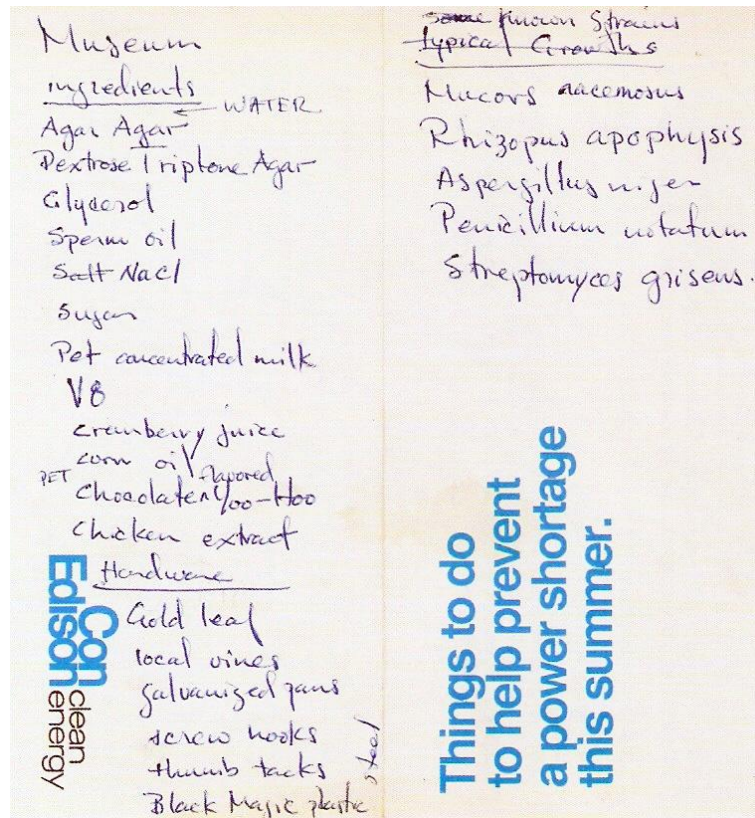 Museum
ingredients
WATER
Agar Agar
Dextrose Triptone Agar
Glycerol
Sperm oil
Salt NaCl
Sugar
Pet concentrated milk
V8
Cranberry juice
corn oil
PET
flavored
Chocolate Yoo-Hoo
Chicken extract
Hardware
Gold leaf
local vines
galvanized pans
screw hooks
thumb tacks
steel
Black Magic plastic
Con
Edison
clean
energy
some known Strains
typical Growths
Mucors racemosus
Rhizopus apophysis
Aspergillus niger
Penicillium notatum
Streptomyces griseus.
Things to do
to help prevent
a power shortage
this summer.